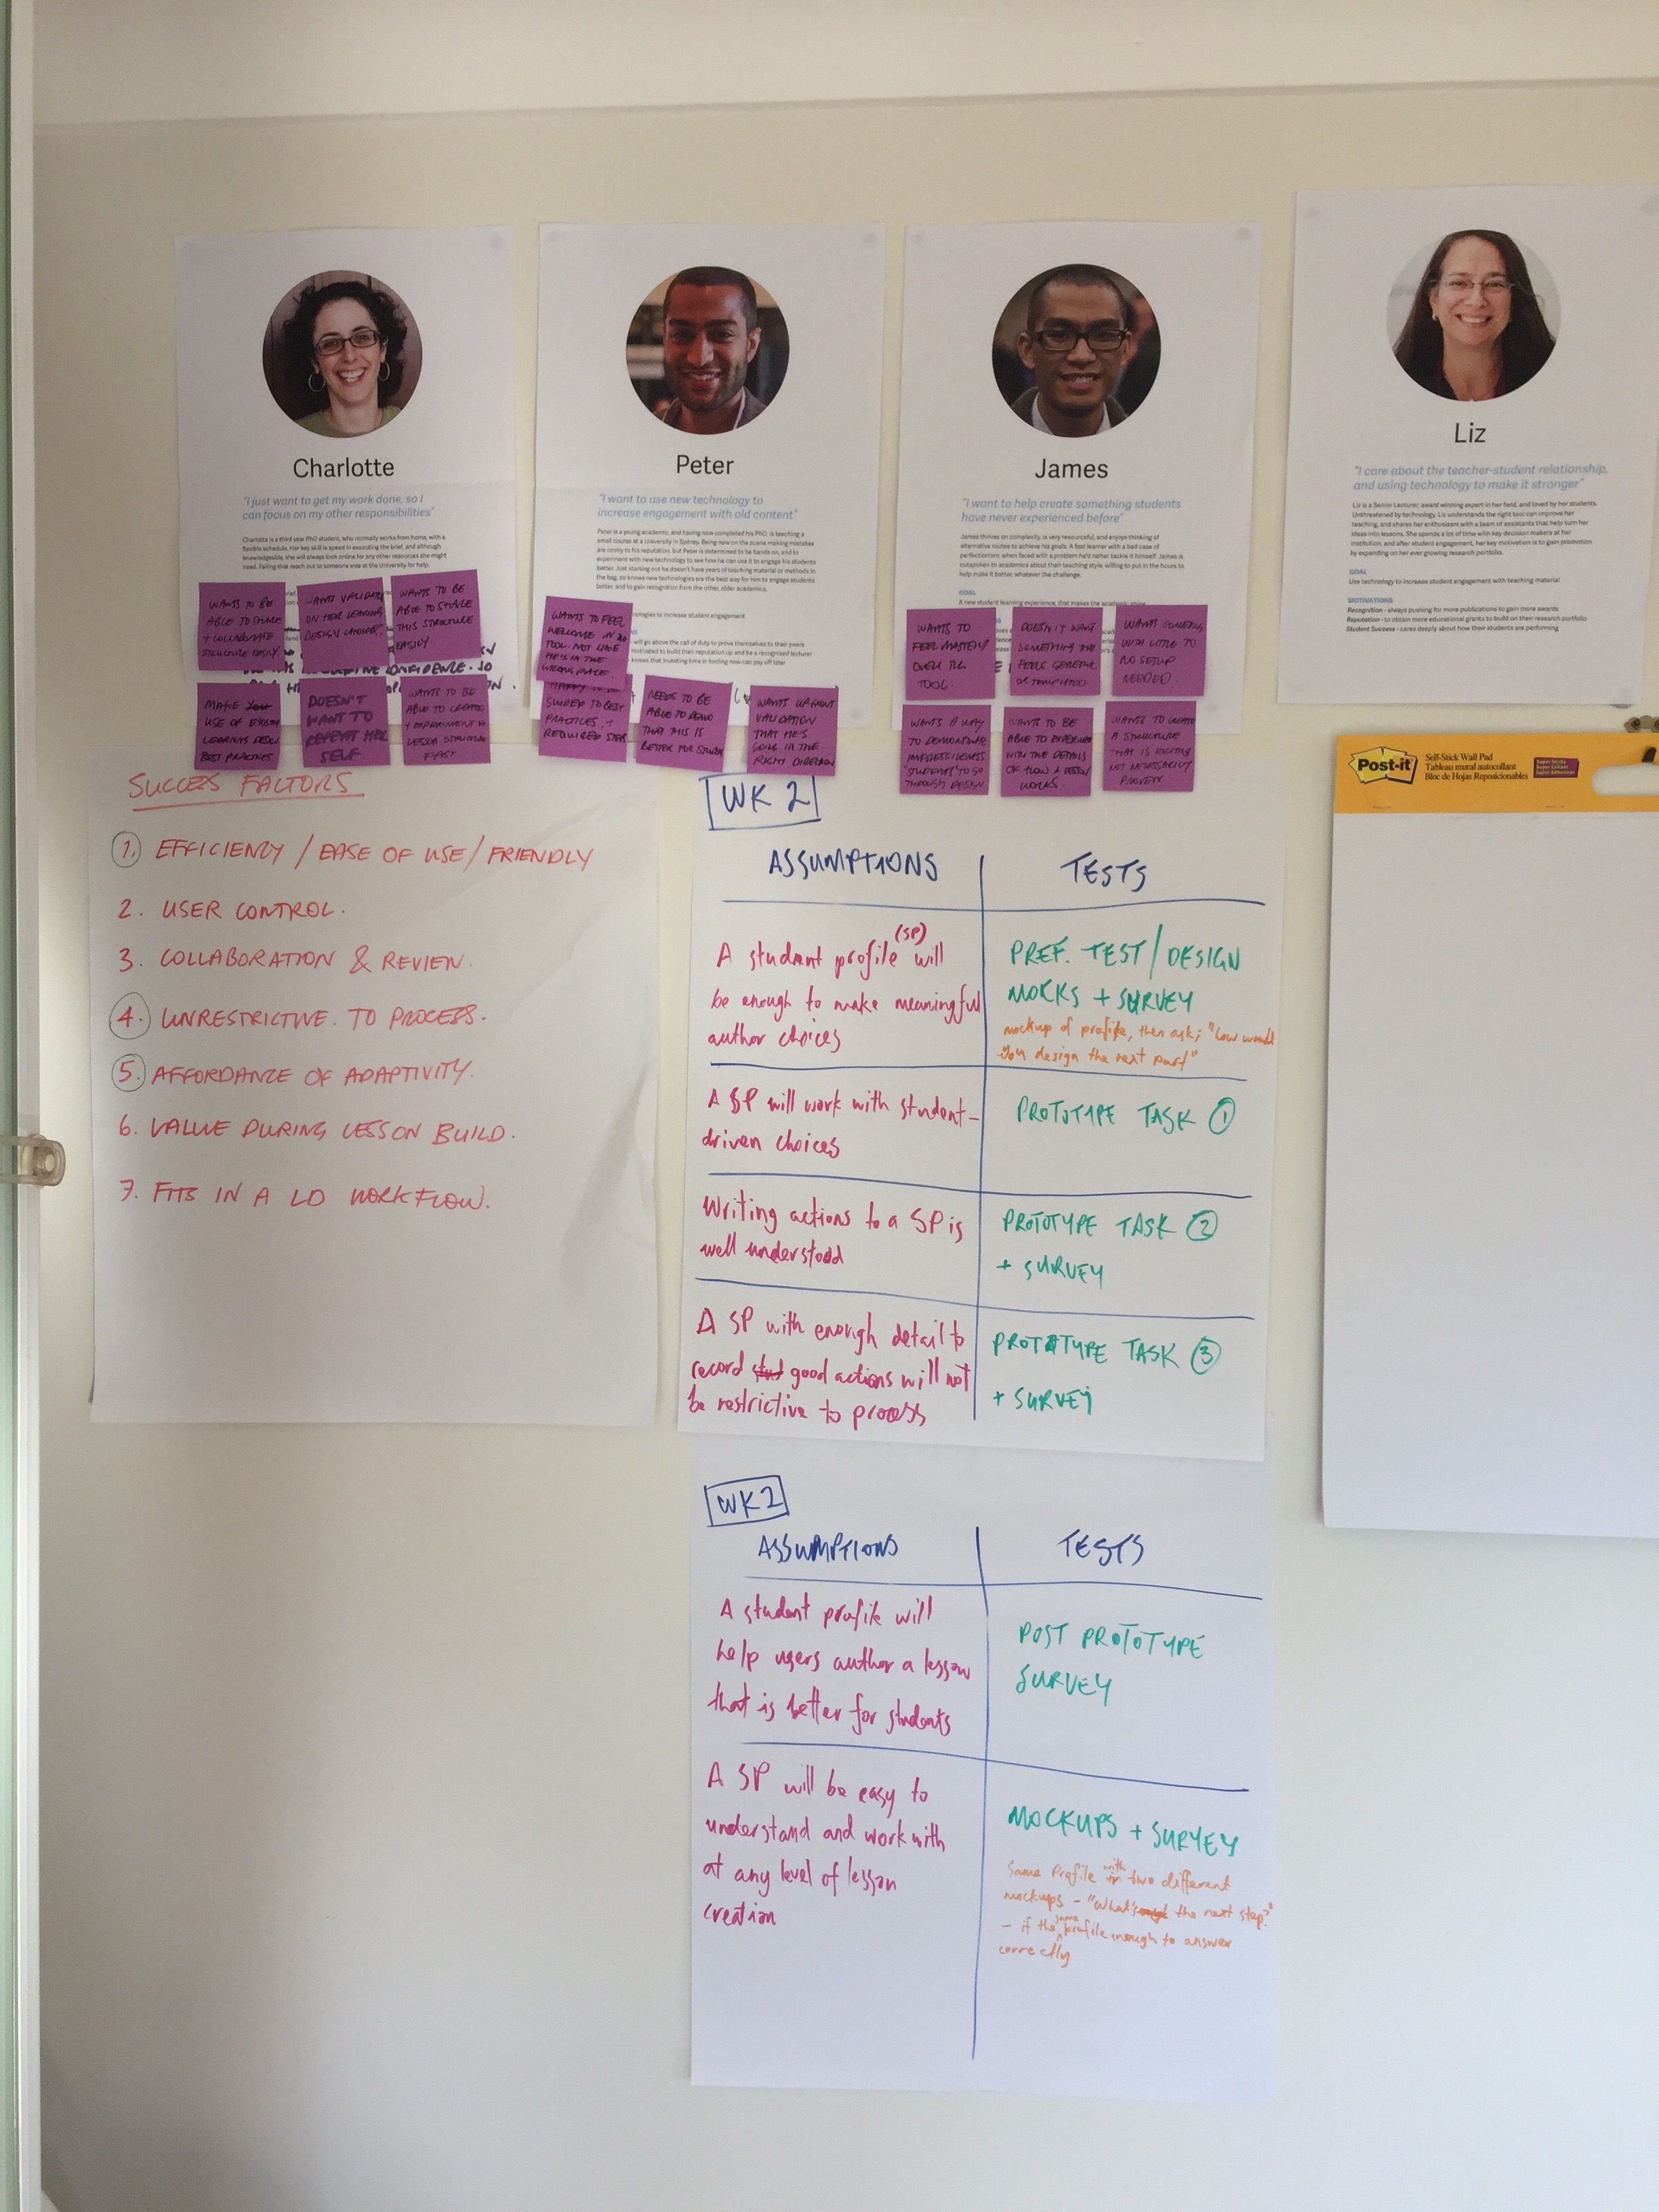 Charlotte
"I just want to get my work done, so I
can focus on my other responsibilities"
Charlotte is a third year PhD student, who normally works from home, with a
flexible schedule. Her key skill is speed in executing the brief, and although
knowledgeable, she will always look online for any other resources she might
need. Failing that reach out to someone else at the University for help.
WANTS TO BE
ABLE TO SHARE
+ COLLABORATE
STRUCTURE EASILY
WANTS VALIDATION
ON HER LEARNING
DESIGN CHOICES
WANTS TO BE
ABLE TO
THIS STRUCTURE
EASILY
CONFIDENCE. SO
MAKE
USE OF EXISTING
LEARNING DESIGN
BEST PRACTICES.
DOESN'T
WANT TO
REPEAT HER
SELF
WANTS TO BE
ABLE TO CREATE
+ EXPERIMENT W
LESSON STRUCTURE
FAST
Peter
"I want to use new technology to
increase engagement with old content"
Peter is a young academic, and having now completed his PhD, is teaching a
small course at a University in Sydney. Being new on the scene making mistakes
are costly to his reputation, but Peter is determined to be hands on, and to
experiment with new technology to see how he can use it to engage his students
better. Just starting out he doesn't have years of teaching material or methods in
the bag, so knows new technologies are the best way for him to engage students
better, and to gain recognition from the other, older academics.
nologies to increase student engagement
will go above the call of duty to prove themselves to their peers
motivated to build their reputation up and be a recognised lecturer
knows that investing time in tooling now can pay off later
WANTS TO FEEL
WELCOME IN
TOOL. NOT LIKE
HE'S IN THE
WRONG PLACE.
HAPPY TO BE
GUIDED TO BEST
PRACTICES, +
REQUIRED STEPS
NEEDS TO BE
ABLE TO DEMO
THAT THIS IS
BETTER FOR STUDENTS
WANTS UPFRONT
VALIDATION
THAT HE'S
GOING IN THE
RIGHT DIRECTION
James
"I want to help create something students
have never experienced before"
James thrives on complexity, is very resourceful, and enjoys thinking of
alternative routes to achieve his goals. A fast learner with a bad case of
perfectionism, when faced with a problem he'd rather tackle it himself. James is
outspoken to academics about their teaching style, willing to put in the hours to
help make it better, whatever the challenge.
GOAL
A new student learning experience, that makes the academic shine
WANTS TO
FEEL MASTERY
OVER THE
TOOL.
DOESN'T WANT
SOMETHING THAT
FEELS GENERIC
OR TEMPLATED
WANTS SOMETHING
WITH LITTLE TO
NO SETUP
NEEDED.
WANTS A WAY
TO DEMONSTRATE
"STUDENT" TO GO
THROUGH DESIGN
WANTS TO BE
ABLE TO EXPERIMENT
WITH THE DETAILS
OF HOW A LESSON
WORKS.
WANTS TO CREATE
A STRUCTURE
THAT IS EXCITING
NOT NECESSARILY
PROVEN
Liz
"I care about the teacher-student relationship,
and using technology to make it stronger"
Liz is a Senior Lecturer, award winning expert in her field, and loved by her students.
Unthreatened by technology, Liz understands the right tool can improve her
teaching, and shares her enthusiasm with a team of assistants that help turn her
ideas into lessons. She spends a lot of time with key decision makers at her
institution, and after student engagement, her key motivation is to gain promotion
by expanding on her ever growing research portfolio.
GOAL
Use technology to increase student engagement with teaching material
MOTIVATIONS
Recognition - always pushing for more publications to gain more awards
Reputation - to obtain more educational grants to build on their research portfolio
Student Success - cares deeply about how their students are performing
Post-it
Self-Stick Wall Pad
Tableau mural autocollant
Bloc de Hojas Reposicionables
Super Sticky
SUCCESS FACTORS
1. EFFICIENCY / EASE OF USE / FRIENDLY
2. USER CONTROL.
3. COLLABORATION & REVIEW.
4. UNRESTRICTIVE. TO PROCESS.
5. AFFORDANCE OF ADAPTIVITY.
6. VALUE DURING LESSON BUILD.
7. FITS IN A LD WORKFLOW.
WK 2
ASSUMPTIONS
TESTS
A student profile (SP) will
be enough to make meaningful
author choices
PREF. TEST / DESIGN
MOCKS + SURVEY
mockup of profile, then ask; "how would
you design the next part"
A SP will work with student-
driven choices
PROTOTYPE TASK 1
Writing actions to a SP is
well understood
PROTOTYPE TASK 2
+ SURVEY
A SP with enough detail to
record good actions will not
be restrictive to process
PROTOTYPE TASK 3
+ SURVEY
WK2
ASSUMPTIONS
TESTS
A student profile will
help users author a lesson
that is better for students
POST PROTOTYPE
SURVEY
A SP will be easy to
understand and work with
at any level of lesson
creation
MOCKUPS + SURVEY
Same profile with two different
mockups - "What's the next step?"
- if the same profile enough to answer
correctly